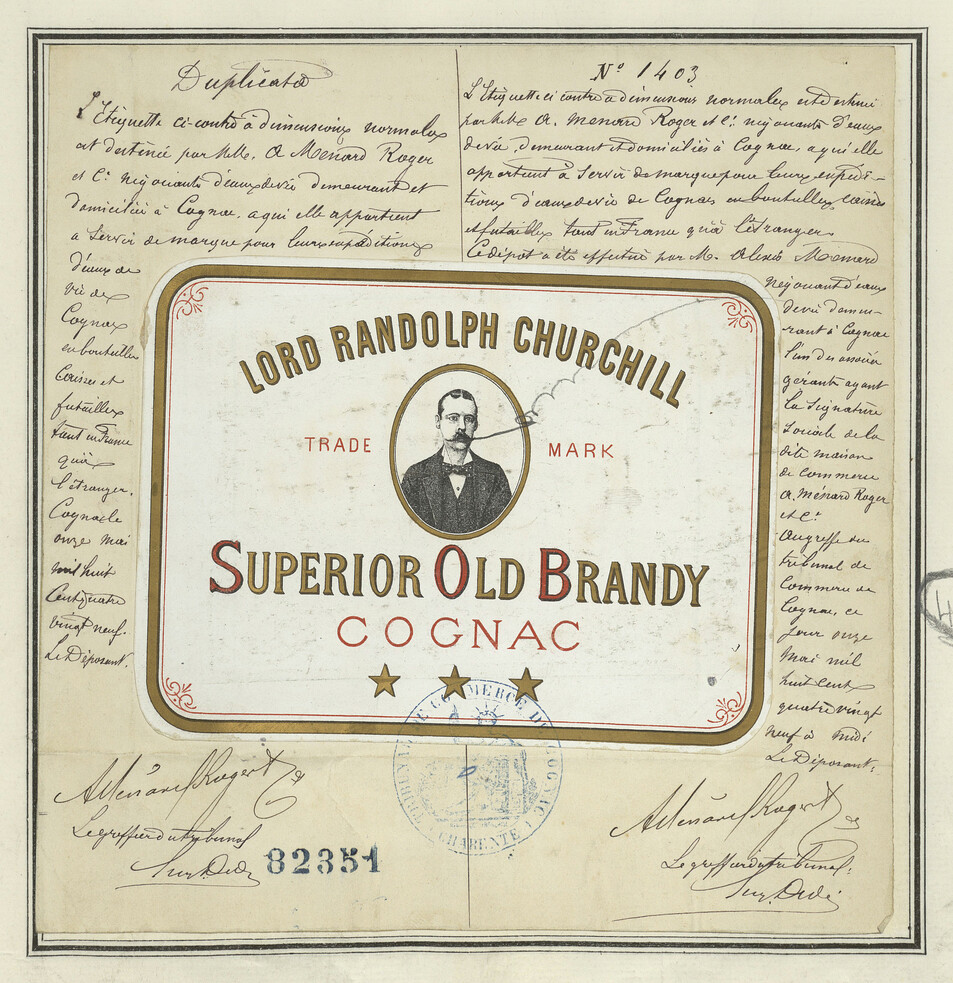 Duplicata
L'Etiquette ci-contre à dimensions normales
est destinée par MM. A Menard Roger
et Cie négociants d'eaux de vie demeurant et
domiciliés à Cognac, a qui elle appartient
a servir de marque pour leurs expéditions
d'eaux de
vie de
Cognac
en bouteilles
Caisses et
futailles
tant en France
qu'à
l'étranger.
Cognac le
onze mai
mil huit
Cent quatre
vingt neuf.
Le Déposant.
No 1403
L'Etiquette ci contre a dimensions normales est destinée
par MM. A. Menard Roger et Cie négociants d'eaux
de vie, demeurant et domiciliés à Cognac, a qui elle
appartient à servir de marque pour leurs expédi-
tions d'eaux de vie de Cognac en bouteilles, caisses
et futailles tant en France qu'à l'étranger.
Ce dépot a été effectué par M. Alexis Menard
Négociant d'eaux
de vie demeu-
rant à Cognac
l'un des associés
gérants ayant
la signature
sociale de la
dite maison
de commerce
A. Ménard Roger
et Cie
Au greffe du
tribunal de
Commerce de
Cognac, ce
jour onze
Mai mil
huit cent
quatre vingt
neuf à midi
Le Déposant.
LORD RANDOLPH CHURCHILL
TRADE MARK
SUPERIOR OLD BRANDY
COGNAC
TRIBUNAL DE COMMERCE DE COGNAC
CHARENTE
A Menard Roger & Cie
Le greffier du tribunal
82351
A Menard Roger & Cie
Le greffier du tribunal.